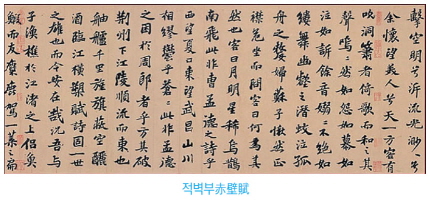 擊空明兮泝流光渺〻兮
余懷望美人兮天一方客有
吹洞簫者倚歌而和之其
聲嗚〻然如怨如慕如
泣如訴餘音嫋〻不絕如
縷舞幽壑之潛蛟泣孤
舟之嫠婦蘇子愀然正
襟危坐而問客曰何為其
然也客曰月明星稀烏鵲
南飛此非曹孟德之詩乎
西望夏口東望武昌山川
相繆鬱乎蒼〻此非孟德
之困於周郎者乎方其破
荊州下江陵順流而東也
舳艫千里旌旗蔽空釃
酒臨江橫槊賦詩固一世
之雄也而今安在哉況吾與
子漁樵於江渚之上侶魚
鰕而友麋鹿駕一葉之扁
적벽부赤壁賦